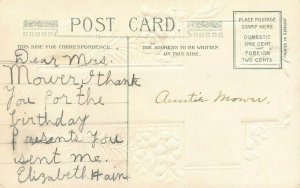 POST CARD.
THIS SIDE FOR CORRESPONDENCE.
THE ADDRESS TO BE WRITTEN
ON THIS SIDE.
PLACE POSTAGE
STAMP HERE
DOMESTIC
ONE CENT
FOREIGN
TWO CENTS
PRINTED IN GERMANY
Dear Mrs.
Mower I thank
You for the
birthday
Presents You
sent me.
Elizabeth Hain.
Auntie Mower.